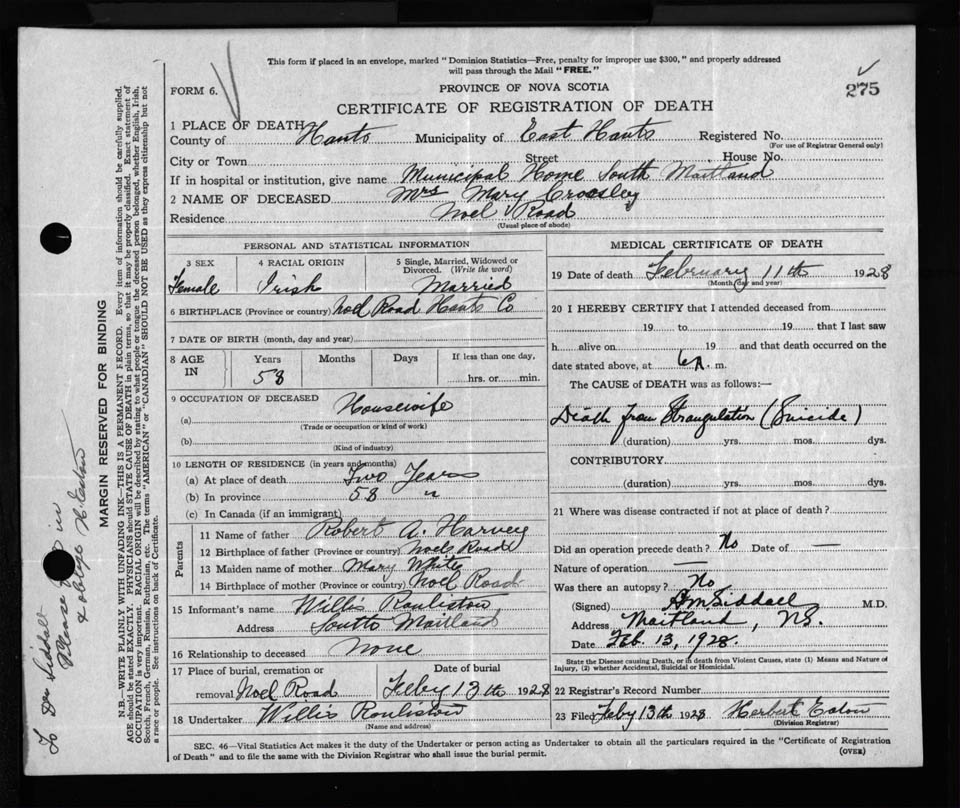 This form if placed in an envelope, marked "Dominion Statistics—Free, penalty for improper use $300," and properly addressed
will pass through the Mail "FREE."
FORM 6.
PROVINCE OF NOVA SCOTIA
275
CERTIFICATE OF REGISTRATION OF DEATH
1 PLACE OF DEATH
County of Hants Municipality of East Hants Registered No.
(For use of Registrar General only)
City or Town Street House No.
If in hospital or institution, give name Municipal Home South Maitland
2 NAME OF DECEASED Mrs Mary Crossley
Residence Noel Road
(Usual place of abode)
PERSONAL AND STATISTICAL INFORMATION
3 SEX 4 RACIAL ORIGIN 5 Single, Married, Widowed or
Divorced. (Write the word)
Female Irish Married
6 BIRTHPLACE (Province or country) Noel Road Hants Co
7 DATE OF BIRTH (month, day and year)
8 AGE IN Years Months Days If less than one day,
58 hrs. or min.
9 OCCUPATION OF DECEASED
(a) Housewife
(Trade or occupation or kind of work)
(b)
(Kind of industry)
10 LENGTH OF RESIDENCE (in years and months)
(a) At place of death Two Years
(b) In province 58 "
(c) In Canada (if an immigrant)
Parents
11 Name of father Robert A. Harvey
12 Birthplace of father (Province or country) Noel Road
13 Maiden name of mother Mary White
14 Birthplace of mother (Province or country) Noel Road
15 Informant's name Willis
Address South Maitland
16 Relationship to deceased None
17 Place of burial, cremation or Date of burial
removal Noel Road Feby 13th 1928
18 Undertaker Willis
(Name and address)
MEDICAL CERTIFICATE OF DEATH
19 Date of death February 11th 1928
(Month, day and year)
20 I HEREBY CERTIFY that I attended deceased from
19 to 19 that I last saw
h alive on 19 and that death occurred on the
date stated above, at 6 A. m.
The CAUSE of DEATH was as follows:—
Death from Strangulation (Suicide)
(duration) yrs. mos. dys.
CONTRIBUTORY
(duration) yrs. mos. dys.
21 Where was disease contracted if not at place of death?
Did an operation precede death? No Date of —
Nature of operation —
Was there an autopsy? No
(Signed) Siddall M.D.
Address Maitland, NS.
Date Feb. 13, 1928.
State the Disease causing Death, or in death from Violent Causes, state (1) Means and Nature of
Injury, (2) whether Accidental, Suicidal or Homicidal.
22 Registrar's Record Number
23 Filed Feby 13th 1928 Herbert Eaton
(Division Registrar)
SEC. 46—Vital Statistics Act makes it the duty of the Undertaker or person acting as Undertaker to obtain all the particulars required in the "Certificate of Registration
of Death" and to file the same with the Division Registrar who shall issue the burial permit.
(OVER)
MARGIN RESERVED FOR BINDING
N.B.—WRITE PLAINLY WITH UNFADING INK—THIS IS A PERMANENT RECORD. Every item of information should be carefully supplied.
AGE should be stated EXACTLY. PHYSICIANS should STATE CAUSE OF DEATH in plain terms, so that it may be properly classified. Exact statement of
OCCUPATION is very important. RACIAL ORIGIN will be described by stating to what people or tongue the deceased person belonged, whether English, Irish,
Scotch, French, German, Russian, Ruthenian, etc. The terms "AMERICAN" or "CANADIAN" SHOULD NOT BE USED as they express citizenship but not
a race or people. See instructions on back of Certificate.
To Dr Siddall
Please in
& oblige H. Eaton